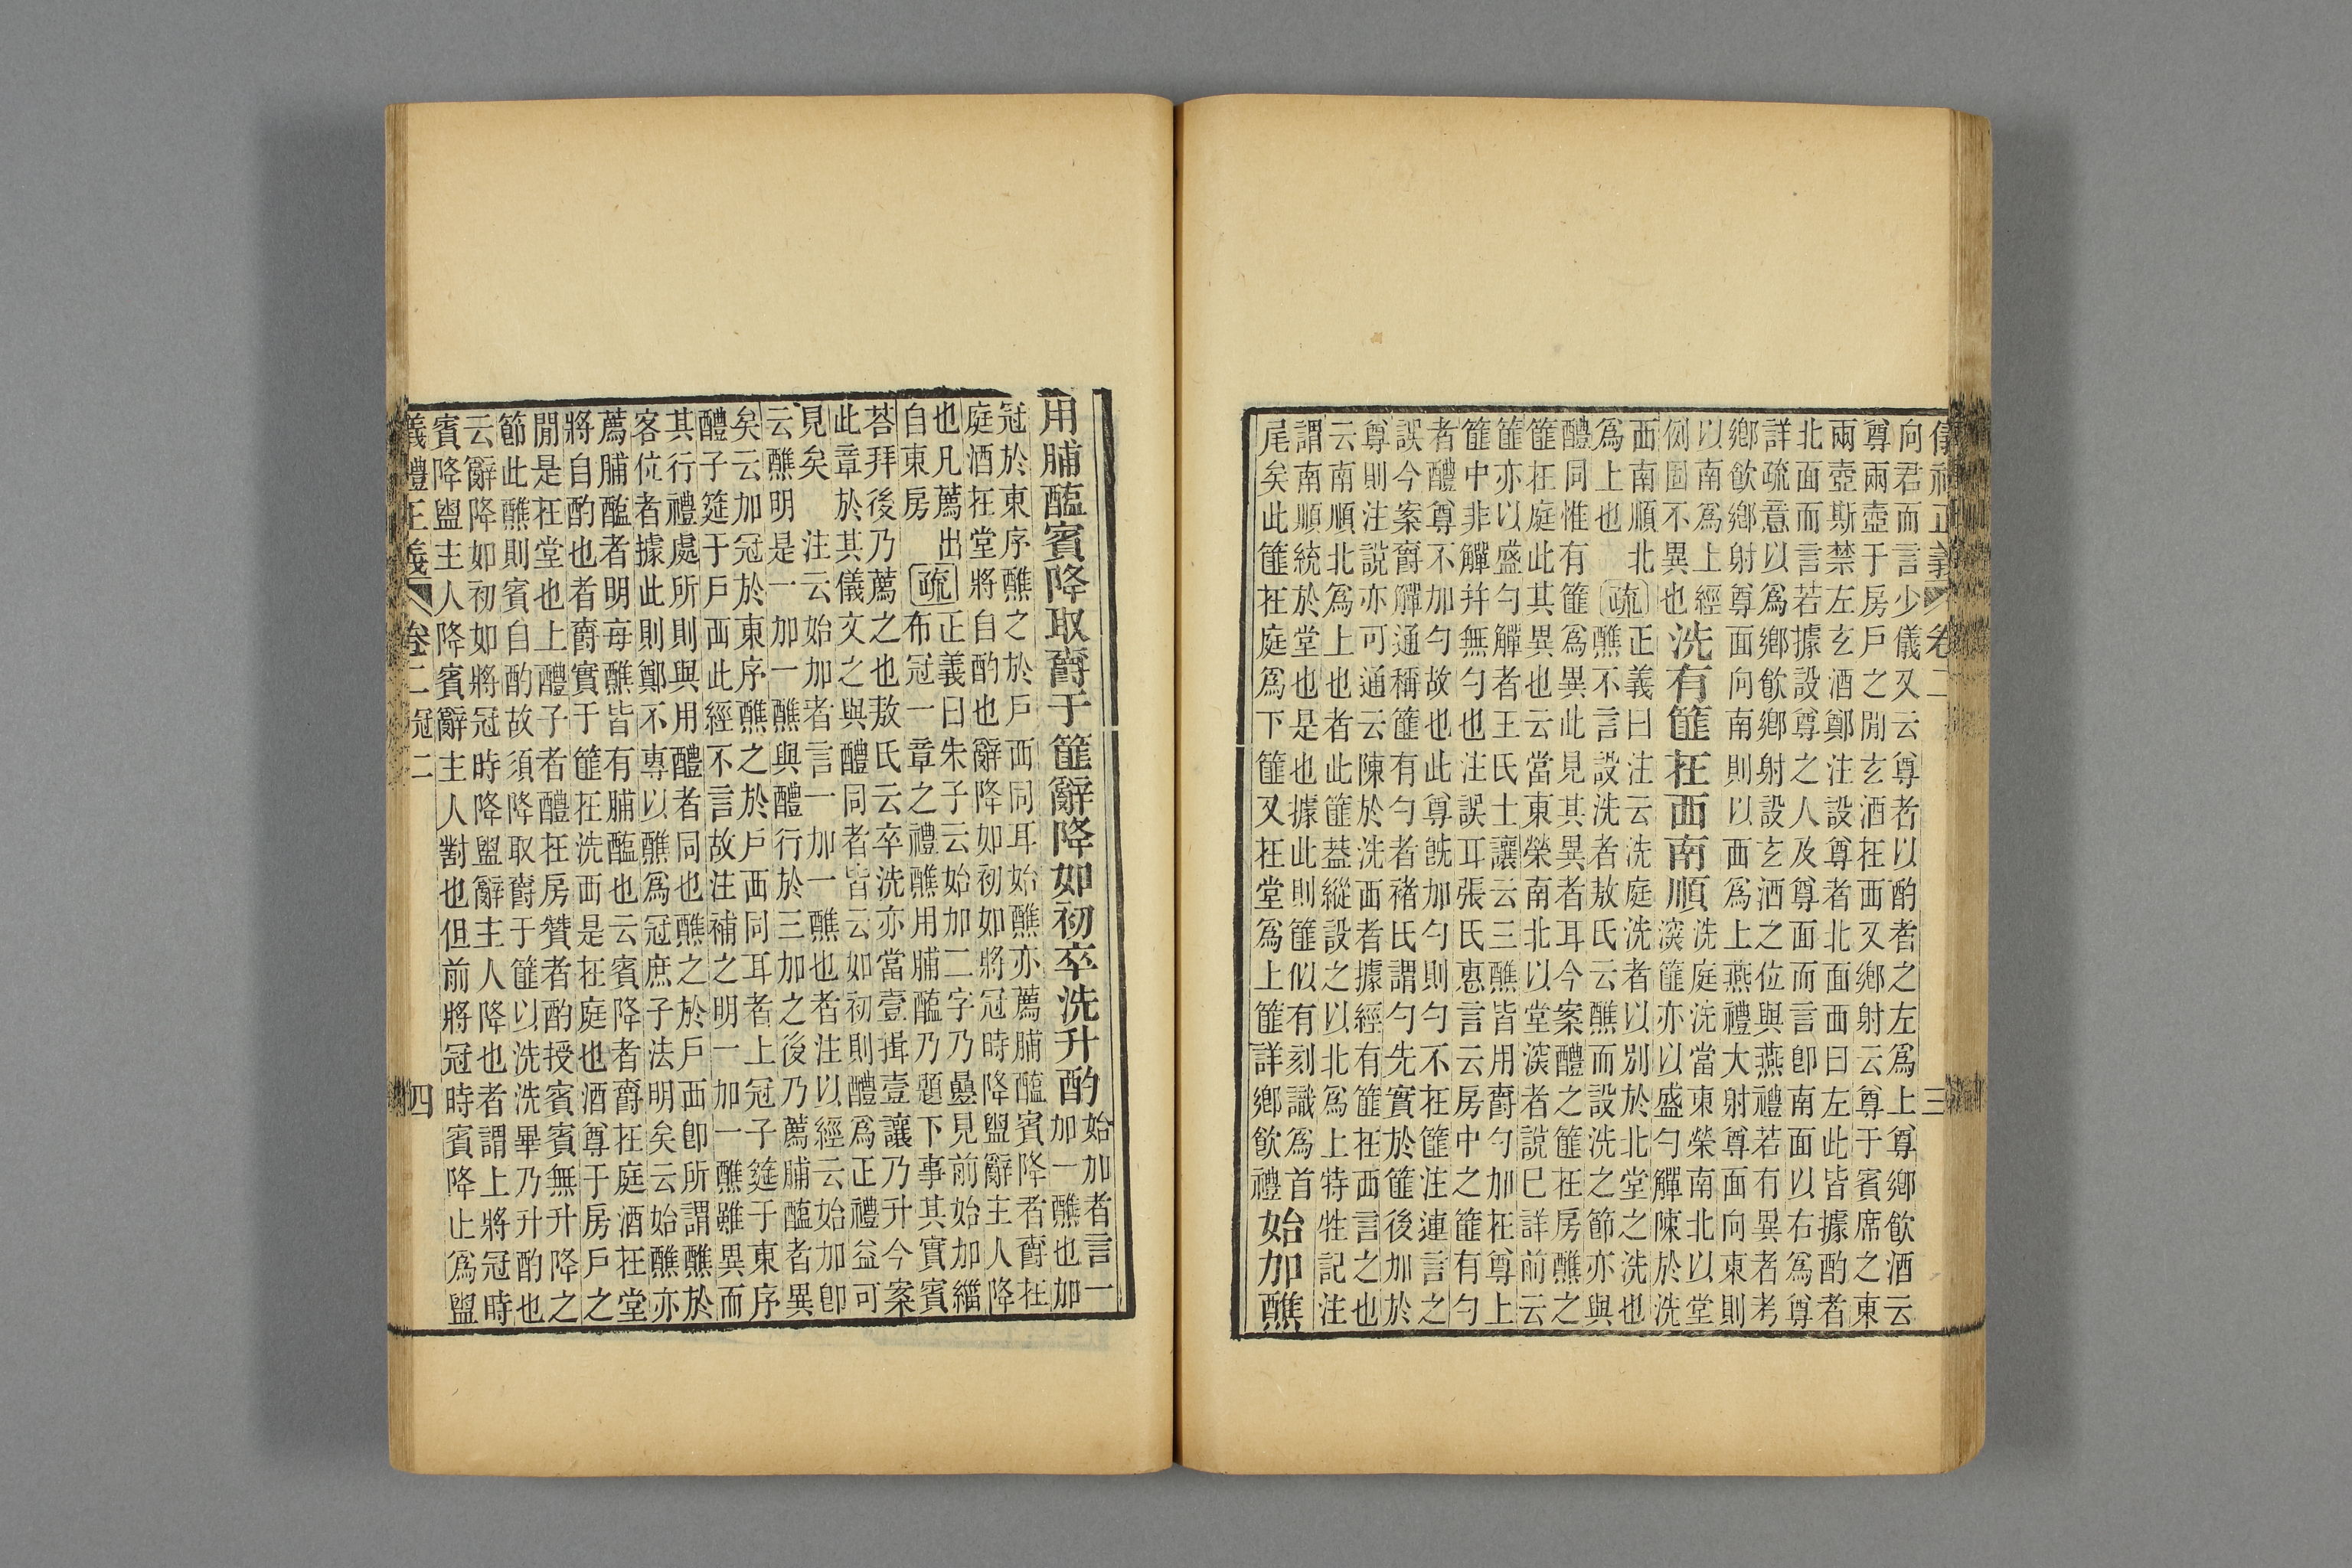 儀禮正義 卷二 三
向君而言少儀又云尊者以酌者之左爲上尊鄉飮酒云
尊兩壺于房戶之閒玄酒在西又鄉射云尊于賓席之東
兩壺斯禁左玄酒鄭注設尊者北面西曰左此皆據酌者
北面而言若據設尊之人及尊面而言卽南面以右爲尊
詳疏意以爲鄉飮鄉射設玄酒之位與燕禮若有異者考
鄉飮鄉射尊面向南則以西爲上燕禮大射尊面向東則
以南爲上經
側固不異也
洗有篚在西南順
洗庭洗當東榮南北以堂
深篚亦以盛勺觶陳於洗
西南順北
爲上也
疏
正義曰注云洗庭洗洗者以別於北堂之洗也
醮不言設洗者敖氏云醮而設洗之節亦與
醴同惟有篚爲異此見其異者耳今案醴之篚在房醮之
篚在庭此其異也云當東榮南北以堂深者說巳詳前云
篚亦以盛勺觶者王氏士讓云三醮皆用爵勺加在尊上
篚中非觶幷無勺也注誤耳張氏惠言云房中之篚有勺
者醴尊不加勺故也此尊旣加勺則勺不在篚注連言之
誤今案爵觶通稱篚有勺者褚氏謂勺先實於篚後加於
尊則注說亦可通云陳於洗西者據經有篚在西言之也
云南順北爲上也者此篚葢縱設之以北爲上特牲記注
謂南順統於堂也是也據此則篚似有刻識爲首
尾矣此篚在庭爲下篚又在堂爲上篚詳鄉飮禮
始加醮
用脯醢賓降取爵于篚辭降如初卒洗升酌
始加者言一
加一醮也加
冠於東序醮之於戶西同耳始醮亦薦脯醢賓降者爵在
庭酒在堂將自酌也辭降如初如將冠時降盥辭主人降
也凡薦出
自東房
疏
正義曰朱子云始加二字乃疊見前始加緇
布冠一章之禮醮用脯醢乃題下事其實賓
荅拜後乃薦之也敖氏云卒洗亦當壹揖壹讓乃升今案
此章於其儀文之與醴同者皆云如初則醴爲正禮益可
見矣 注云始加者言一加一醮也者注以經云始加卽
云醮明是一加一醮與醴行於三加之後乃薦脯醢者異
矣云加冠於東序醮之於戶西同耳者上冠子筵于東序
醴子筵于戶西此經不言故注補之明一加一醮雖異而
其行禮處所則與用醴者同也醮之於戶西卽所謂醮於
客位者據此則鄭不專以醮爲冠庶子法明矣云始醮亦
薦脯醢者明每醮皆有脯醢也云賓降者爵在庭酒在堂
將自酌也者爵實于篚在洗西是在庭也酒尊于房戶之
閒是在堂也上醴子者醴在房贊者酌授賓賓無升降之
節此醮則賓自酌故須降取爵于篚以洗洗畢乃升酌也
云辭降如初如將冠時降盥辭主人降也者謂上將冠時
賓降盥主人降賓辭主人對也但前將冠時賓降止爲盥
儀禮正義 卷二 冠二 四